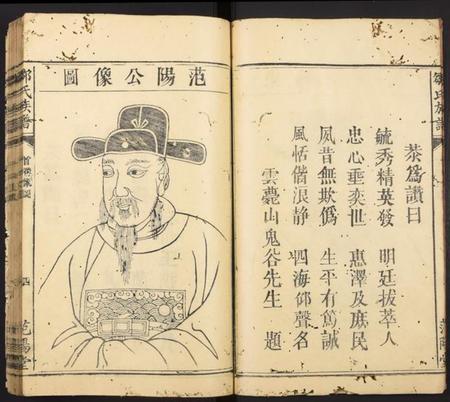 恭爲讚曰
毓秀精英發 明廷拔萃人
忠心垂奕世 惠澤及庶民
夙昔無欺僞 生平有篤誠
風恬偕浪静 四海仰聲名
雲薆山鬼谷先生 題
范陽堂
圖像公陽范
鄒氏族譜
四
范陽堂